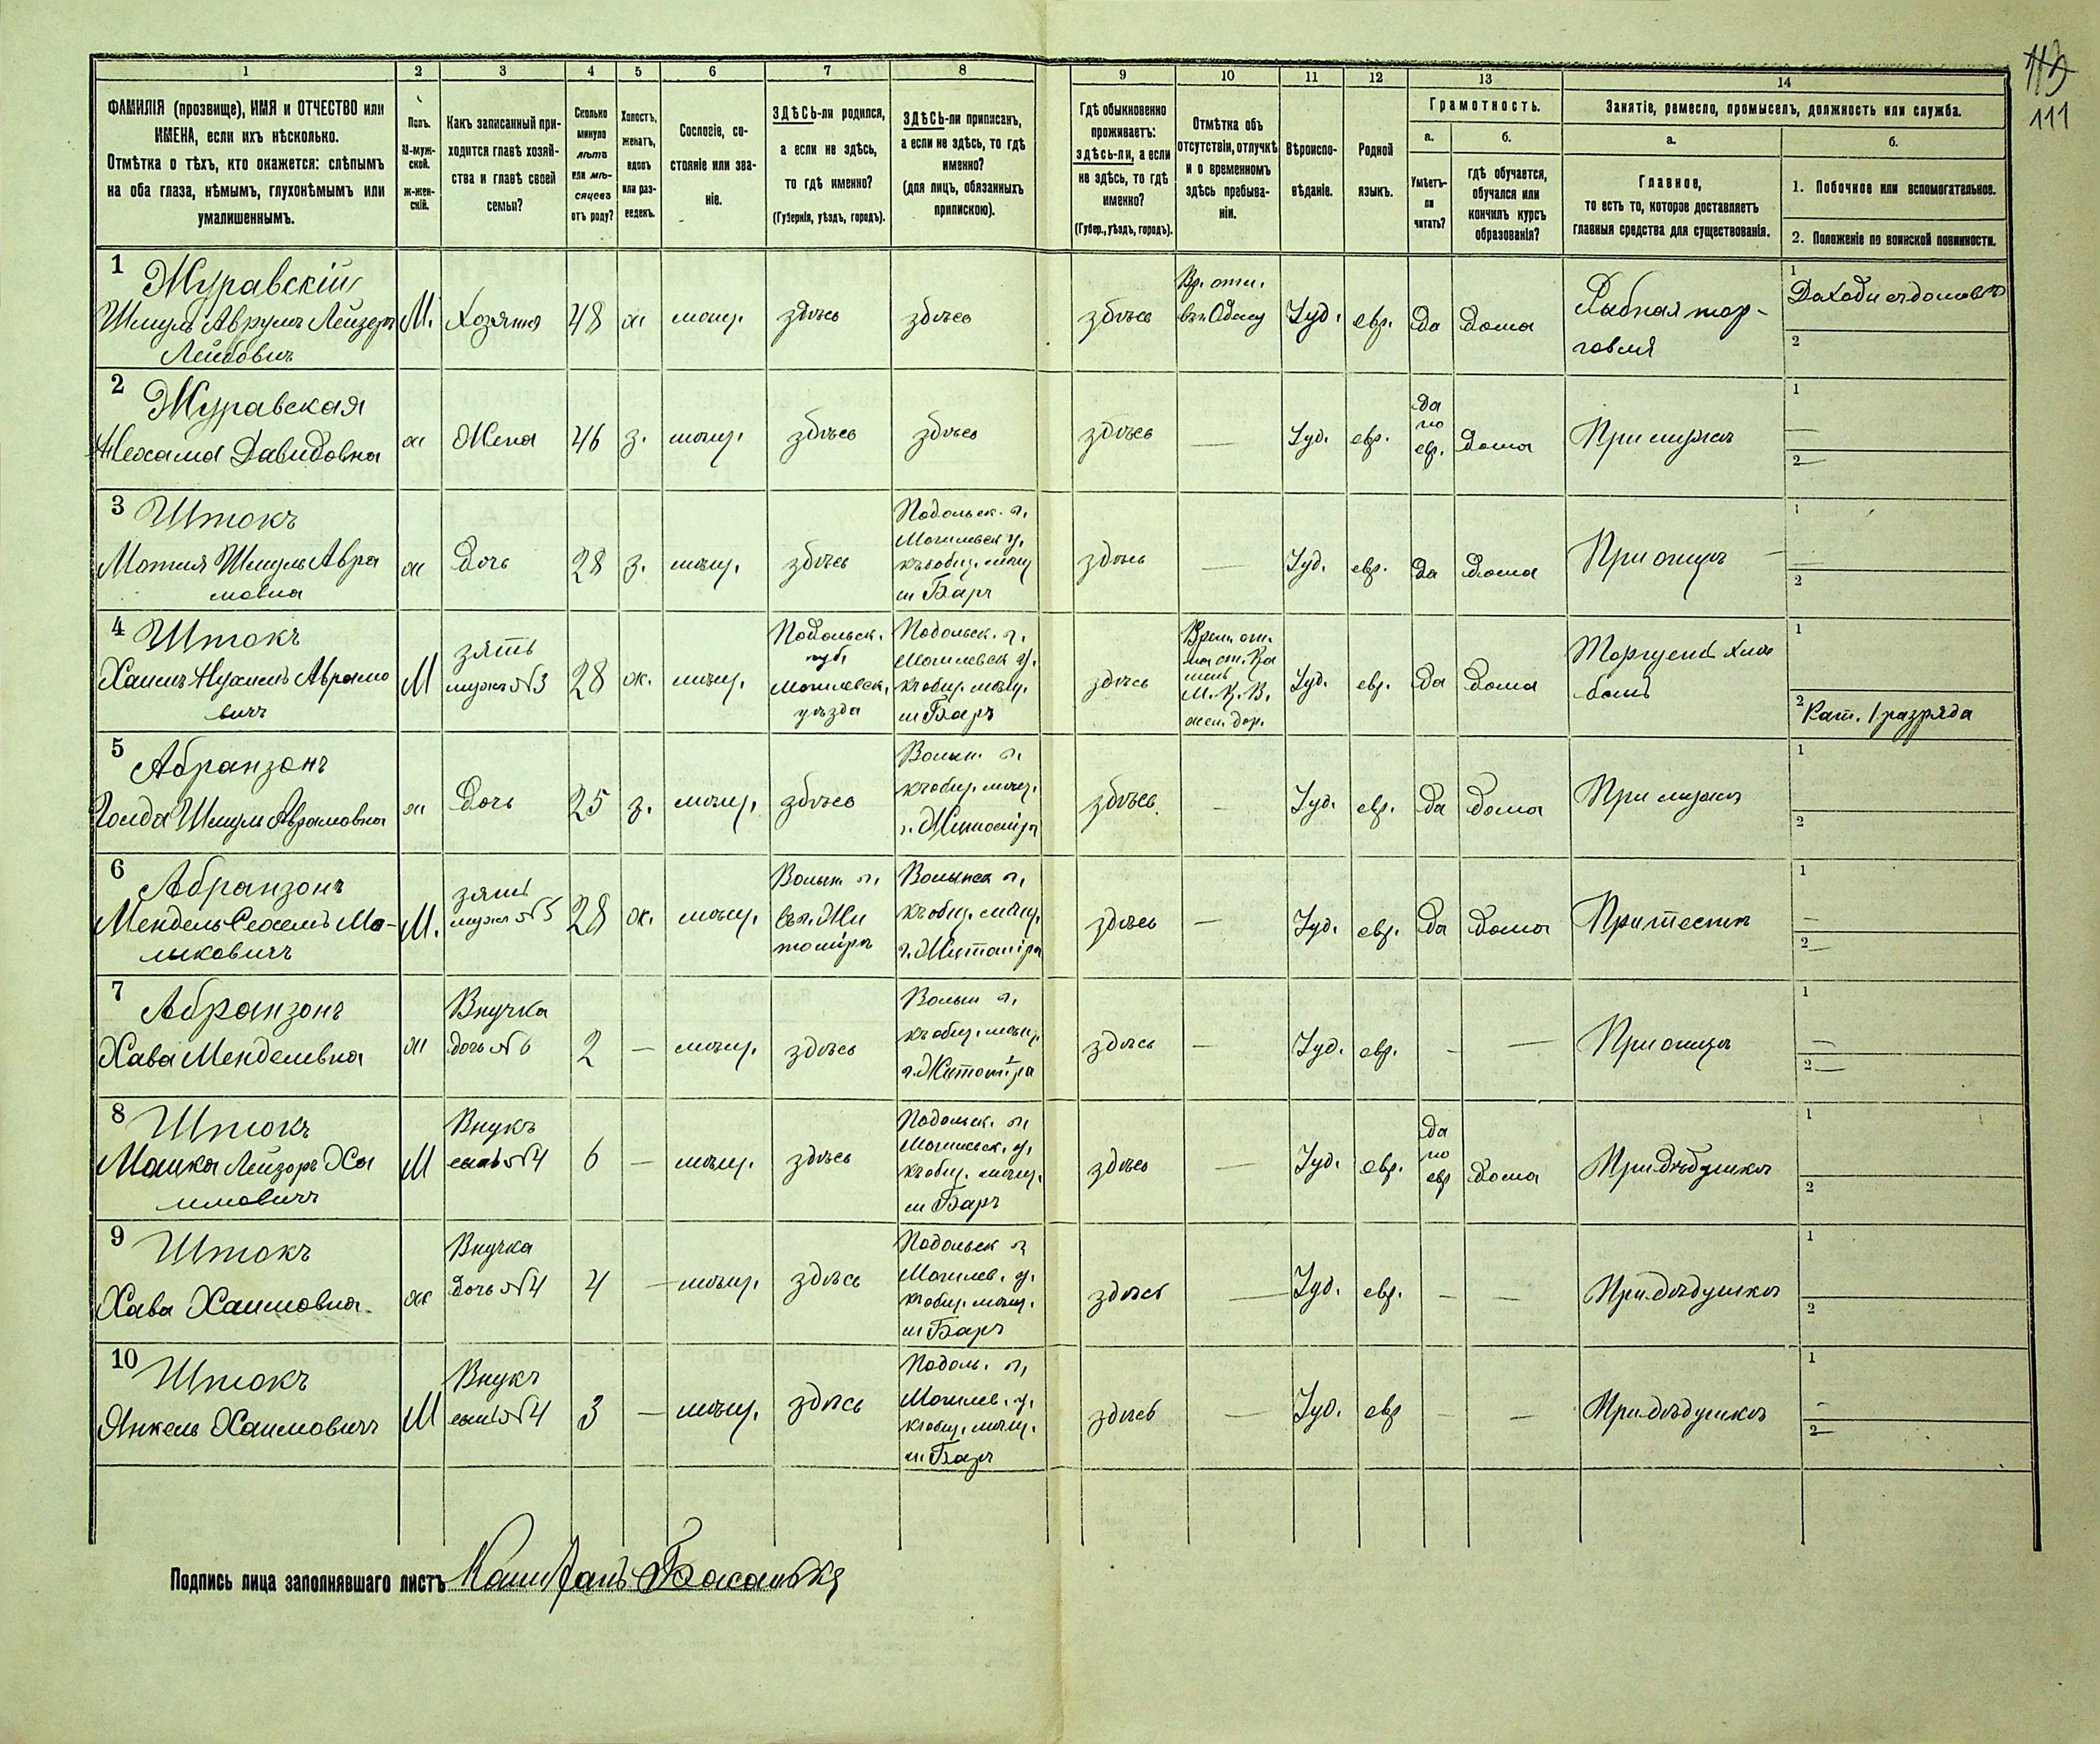 113
111
1 2 3 4 5 6 7 8 9 10 11 12 13 14
ФАМИЛІЯ (прозвище), ИМЯ и ОТЧЕСТВО или
ИМЕНА, если ихъ нѣсколько.
Отмѣтка о тѣхъ, кто окажется: слѣпымъ
на оба глаза, нѣмымъ, глухонѣмымъ или
умалишеннымъ.
Полъ.
М-муж-
ской.
Ж-жен-
скій.
Какъ записанный при-
ходится главѣ хозяй-
ства и главѣ своей
семьи?
Сколько
минуло
лѣтъ
или мѣ-
сяцевъ
отъ роду?
Холостъ,
женатъ,
вдовъ
или раз-
веденъ.
Сословіе, со-
стояніе или зва-
ніе.
ЗДѢСЬ-ли родился,
а если не здѣсь,
то гдѣ именно?
(Губернія, уѣздъ, городъ).
ЗДѢСЬ-ли приписанъ,
а если не здѣсь, то гдѣ
именно?
(для лицъ, обязанныхъ
припискою).
Гдѣ обыкновенно
проживаетъ:
здѣсь-ли, а если
не здѣсь, то гдѣ
именно?
(Губер., уѣздъ, городъ).
Отмѣтка объ
отсутствіи, отлучкѣ
и о временномъ
здѣсь пребыва-
ніи.
Вѣроиспо-
вѣданіе.
Родной
языкъ.
Грамотность.
а.
Умѣетъ-
ли
читать?
б.
гдѣ обучается,
обучался или
кончилъ курсъ
образованія?
Занятіе, ремесло, промыселъ, должность или служба.
а.
Главное,
то есть то, которое доставляетъ
главныя средства для существованія.
б.
1. Побочное или вспомогательное.
2. Положеніе по воинской повинности.
1 Журавскій
Шмуль Аврумъ Лейзеръ
Лейбовичъ
М.
Хозяинъ
48
ж
мѣщ.
здѣсь
здѣсь
здѣсь
Вр. отл.
въ г. Одессу
Іуд.
евр.
да
дома
Рыбная тор-
говля
1
Доходы съ домовъ
2
2 Журавская
Нехама Давидовна
ж
Жена
46
з.
мѣщ.
здѣсь
здѣсь
здѣсь
—
Іуд.
евр.
да
по
евр.
дома
При мужѣ
1
—
2 —
3 Штокъ
Мотля Шмуль Авра
мовна
ж
Дочь
28
з.
мѣщ.
здѣсь
Подольск. г.
Могилевск у.
къ общ. мѣщ
м Баръ
здѣсь
—
Іуд.
евр.
да
дома
При отцѣ
1
—
2
4 Штокъ
Хаимъ Нухимъ Абрамо
вичъ
М
зять
мужъ №3
28
ж.
мѣщ.
Подольск.
губ.
Могилевск.
уѣзда
Подольск. г.
Могилевск у.
къ общ. мѣщ.
м Баръ
здѣсь
Врем. от.
на ст. Ка
мень
М. К. В.
жел. дор.
Іуд.
евр.
да
дома
Торгуетъ хлѣ
бомъ
1
2 Рат. 1 разряда
5 Абранзонъ
Голда Шмуль Аврамовна
ж
Дочь
25
з.
мѣщ.
здѣсь
Волын. г.
къ общ. мѣщ.
г. Житоміра
здѣсь
—
Іуд.
евр.
да
дома
При мужѣ
1
2
6 Абранзонъ
Мендель Сехель Мо-
шковичъ
М.
зять
мужъ №5
28
ж.
мѣщ.
Волын. г.
въ г. Жи
томірѣ
Волынск г.
къ общ. мѣщ.
г. Житоміра
здѣсь
—
Іуд.
евр.
да
дома
При тестѣ
1
—
2 —
7 Абранзонъ
Хава Менделевна
ж
Внучка
дочь №6
2
—
мѣщ.
здѣсь
Волын г.
къ общ. мѣщ.
г. Житоміра
здѣсь
—
Іуд.
евр.
—
—
При отцѣ
1
—
2 —
8 Штокъ
Мошка Лейзоръ Ха
имовичъ
М
Внукъ
сынъ №4
6
—
мѣщ.
здѣсь
Подольск. г.
Могилевск. у.
къ общ. мѣщ.
м Баръ
здѣсь
—
Іуд.
евр.
да
по
евр
дома
При дѣдушкѣ
1
2
9 Штокъ
Хава Хаимовна.
ж
Внучка
дочь №4
4
—
мѣщ.
здѣсь
Подольск г.
Могилев. у.
къ общ. мѣщ.
м Баръ
здѣсь
—
Іуд.
евр.
—
—
При дѣдушкѣ
1
2
10 Штокъ
Янкель Хаимовичъ
М
Внукъ
сынъ №4
3
—
мѣщ.
здѣсь
Подоль. г.
Могилев. у.
къ общ. мѣщ.
м Баръ
здѣсь
—
Іуд.
евр
—
—
При дѣдушкѣ
1
—
2 —
Подпись лица заполнявшаго листъ